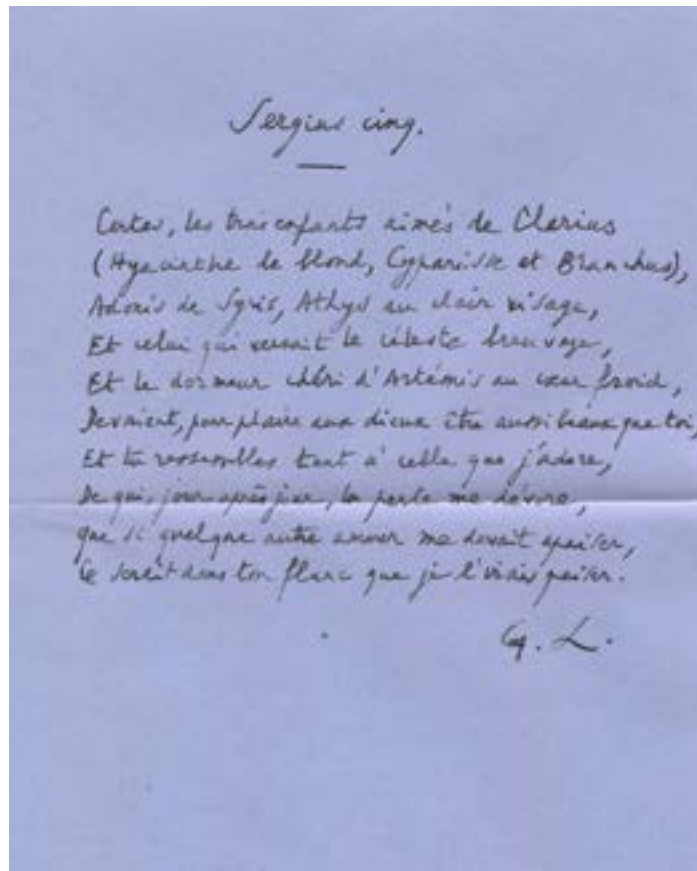 Sergius cinq.
Certes, les trois enfants aimés de Clarius
(Hyacinthe le blond, Cyparisse et Branchus),
Adonis de Syrie, Athys au clair visage,
Et celui qui versait le céleste breuvage,
Et le dormeur chéri d'Artémis au cœur froid,
Devaient, pour plaire aux dieux être aussi beaux que toi,
Et tu ressembles tant à celle que j'adore,
De qui, jour après jour, la perte me dévore,
que si quelque autre amour me devait apaiser,
Ce serait dans ton flanc que je l'irais puiser.
G. L.